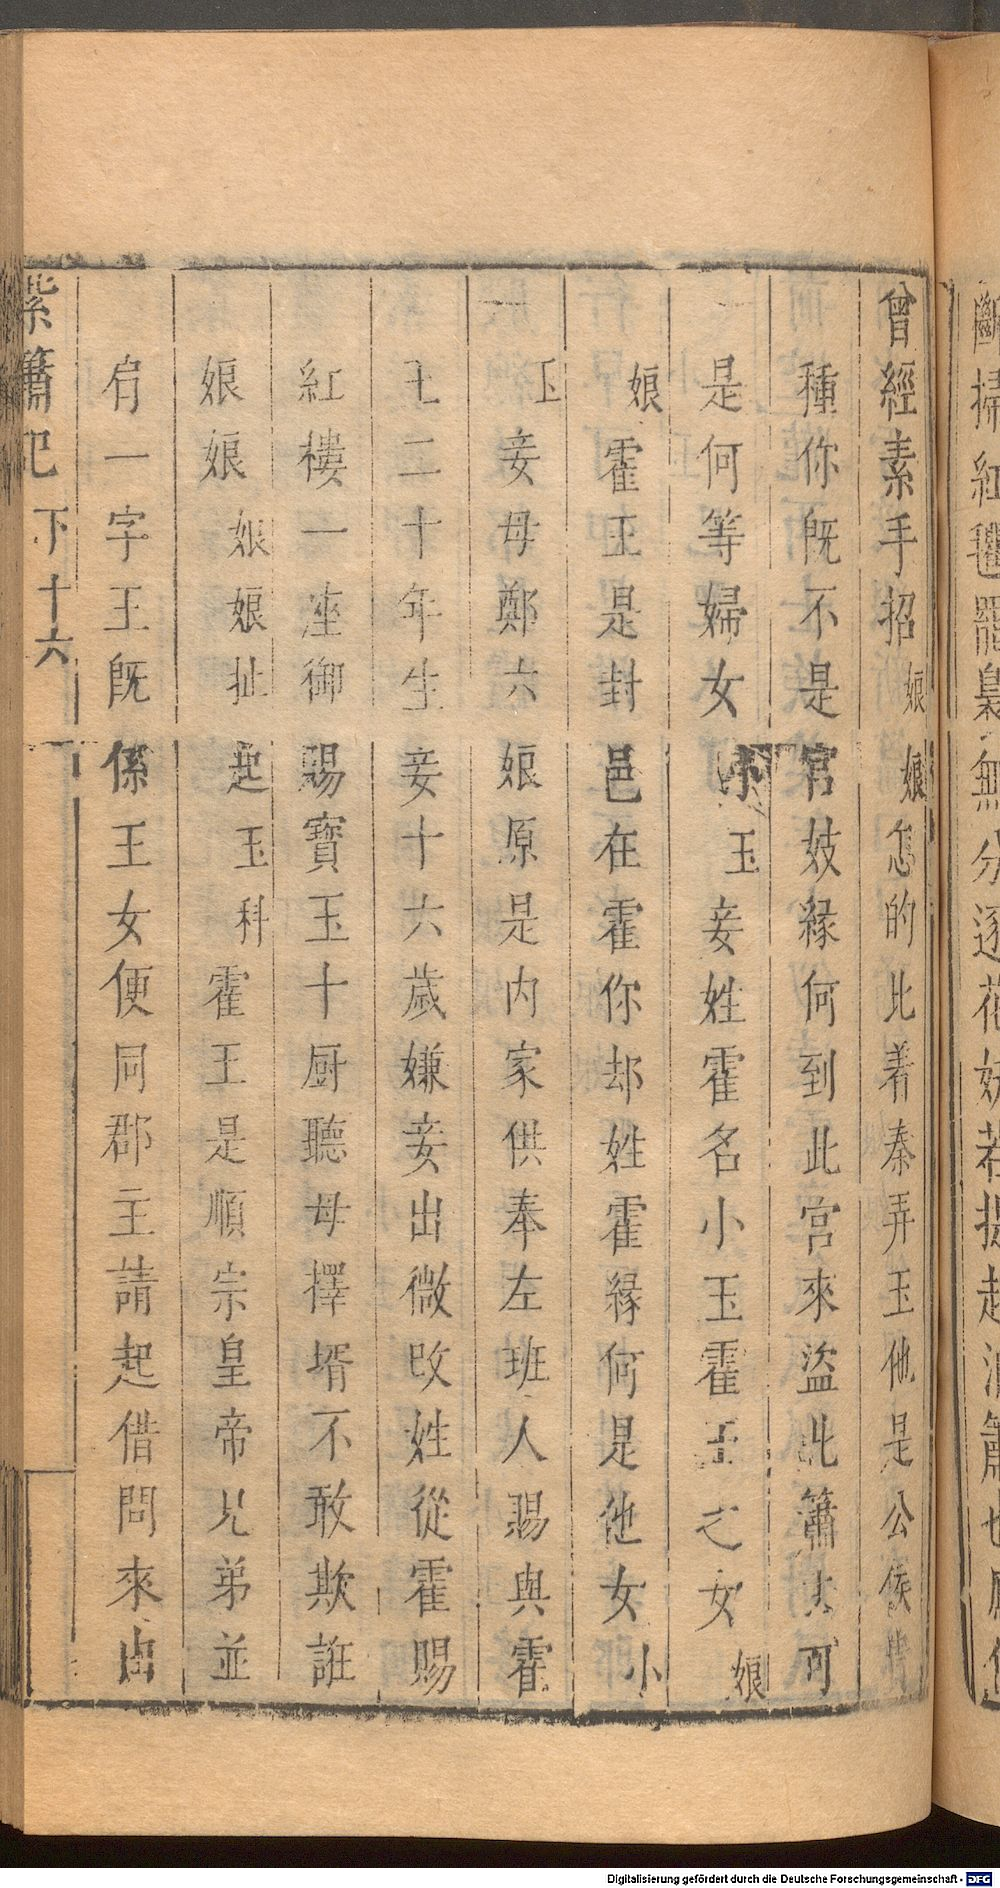 曾經素手招娘娘怎的比着秦弄玉他是公侯
種你既不是官妓緣何到此宮來盜此簫大可
是何等婦女小玉妾姓霍名小玉霍王之女娘
娘霍王是封邑在霍你却姓霍緣何是他女小
玉妾母鄭六娘原是內家供奉左班人賜與霍
王二十年生妾十六歲嫌妾出微改姓從霍賜
紅樓一座御賜寶玉十厨聽母擇壻不敢欺誑
娘娘娘娘扯起玉科霍王是順宗皇帝兄弟並
有一字王既係王女便同郡主請起借問來由
紫簫記下十六
斷掃紅氍毹梟無分逐花妖若提起洞簫也
Digitalisierung gefördert durch die Deutsche Forschungsgemeinschaft - DFG